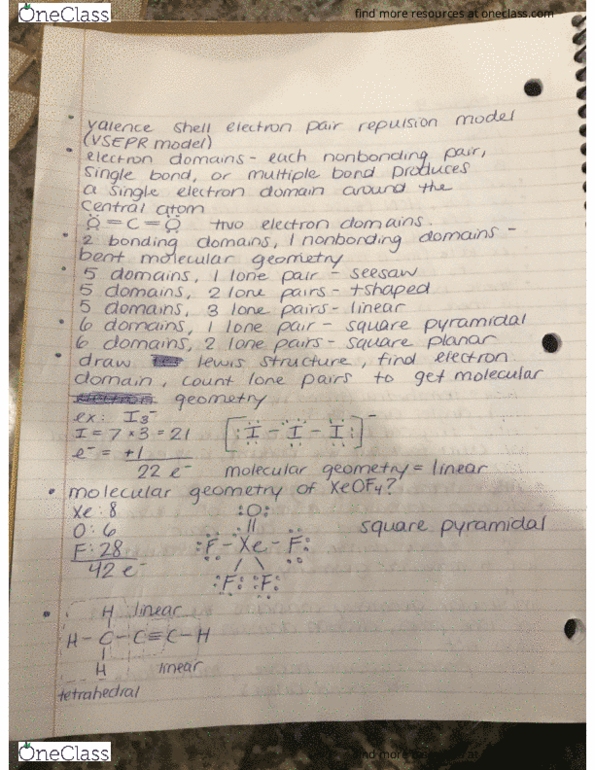 OneClass
find more resources at oneclass.com
• valence shell electron pair repulsion model
(VSEPR model)
• electron domains - each nonbonding pair,
single bond, or multiple bond produces
a single electron domain around the
central atom
:Ö=C=Ö: two electron domains.
• 2 bonding domains, 1 nonbonding domains -
bent molecular geometry
• 5 domains, 1 lone pair - seesaw
5 domains, 2 lone pairs - t shaped
5 domains, 3 lone pairs - linear
• 6 domains, 1 lone pair - square pyramidal
6 domains, 2 lone pairs - square planar
• draw lewis structure, find electron
domain, count lone pairs to get molecular
geometry
ex: I3⁻
I = 7 × 3 = 21 [:I - I - I:]⁻
e⁻ = +1
22 e⁻ molecular geometry = linear
• molecular geometry of XeOF4?
Xe: 8 :O:
O: 6 || square pyramidal
F: 28 :F - Xe - F:
42 e⁻ / \
:F: :F:
• H linear
H - C - C ≡ C - H
H linear
tetrahedral
OneClass
find more resources at